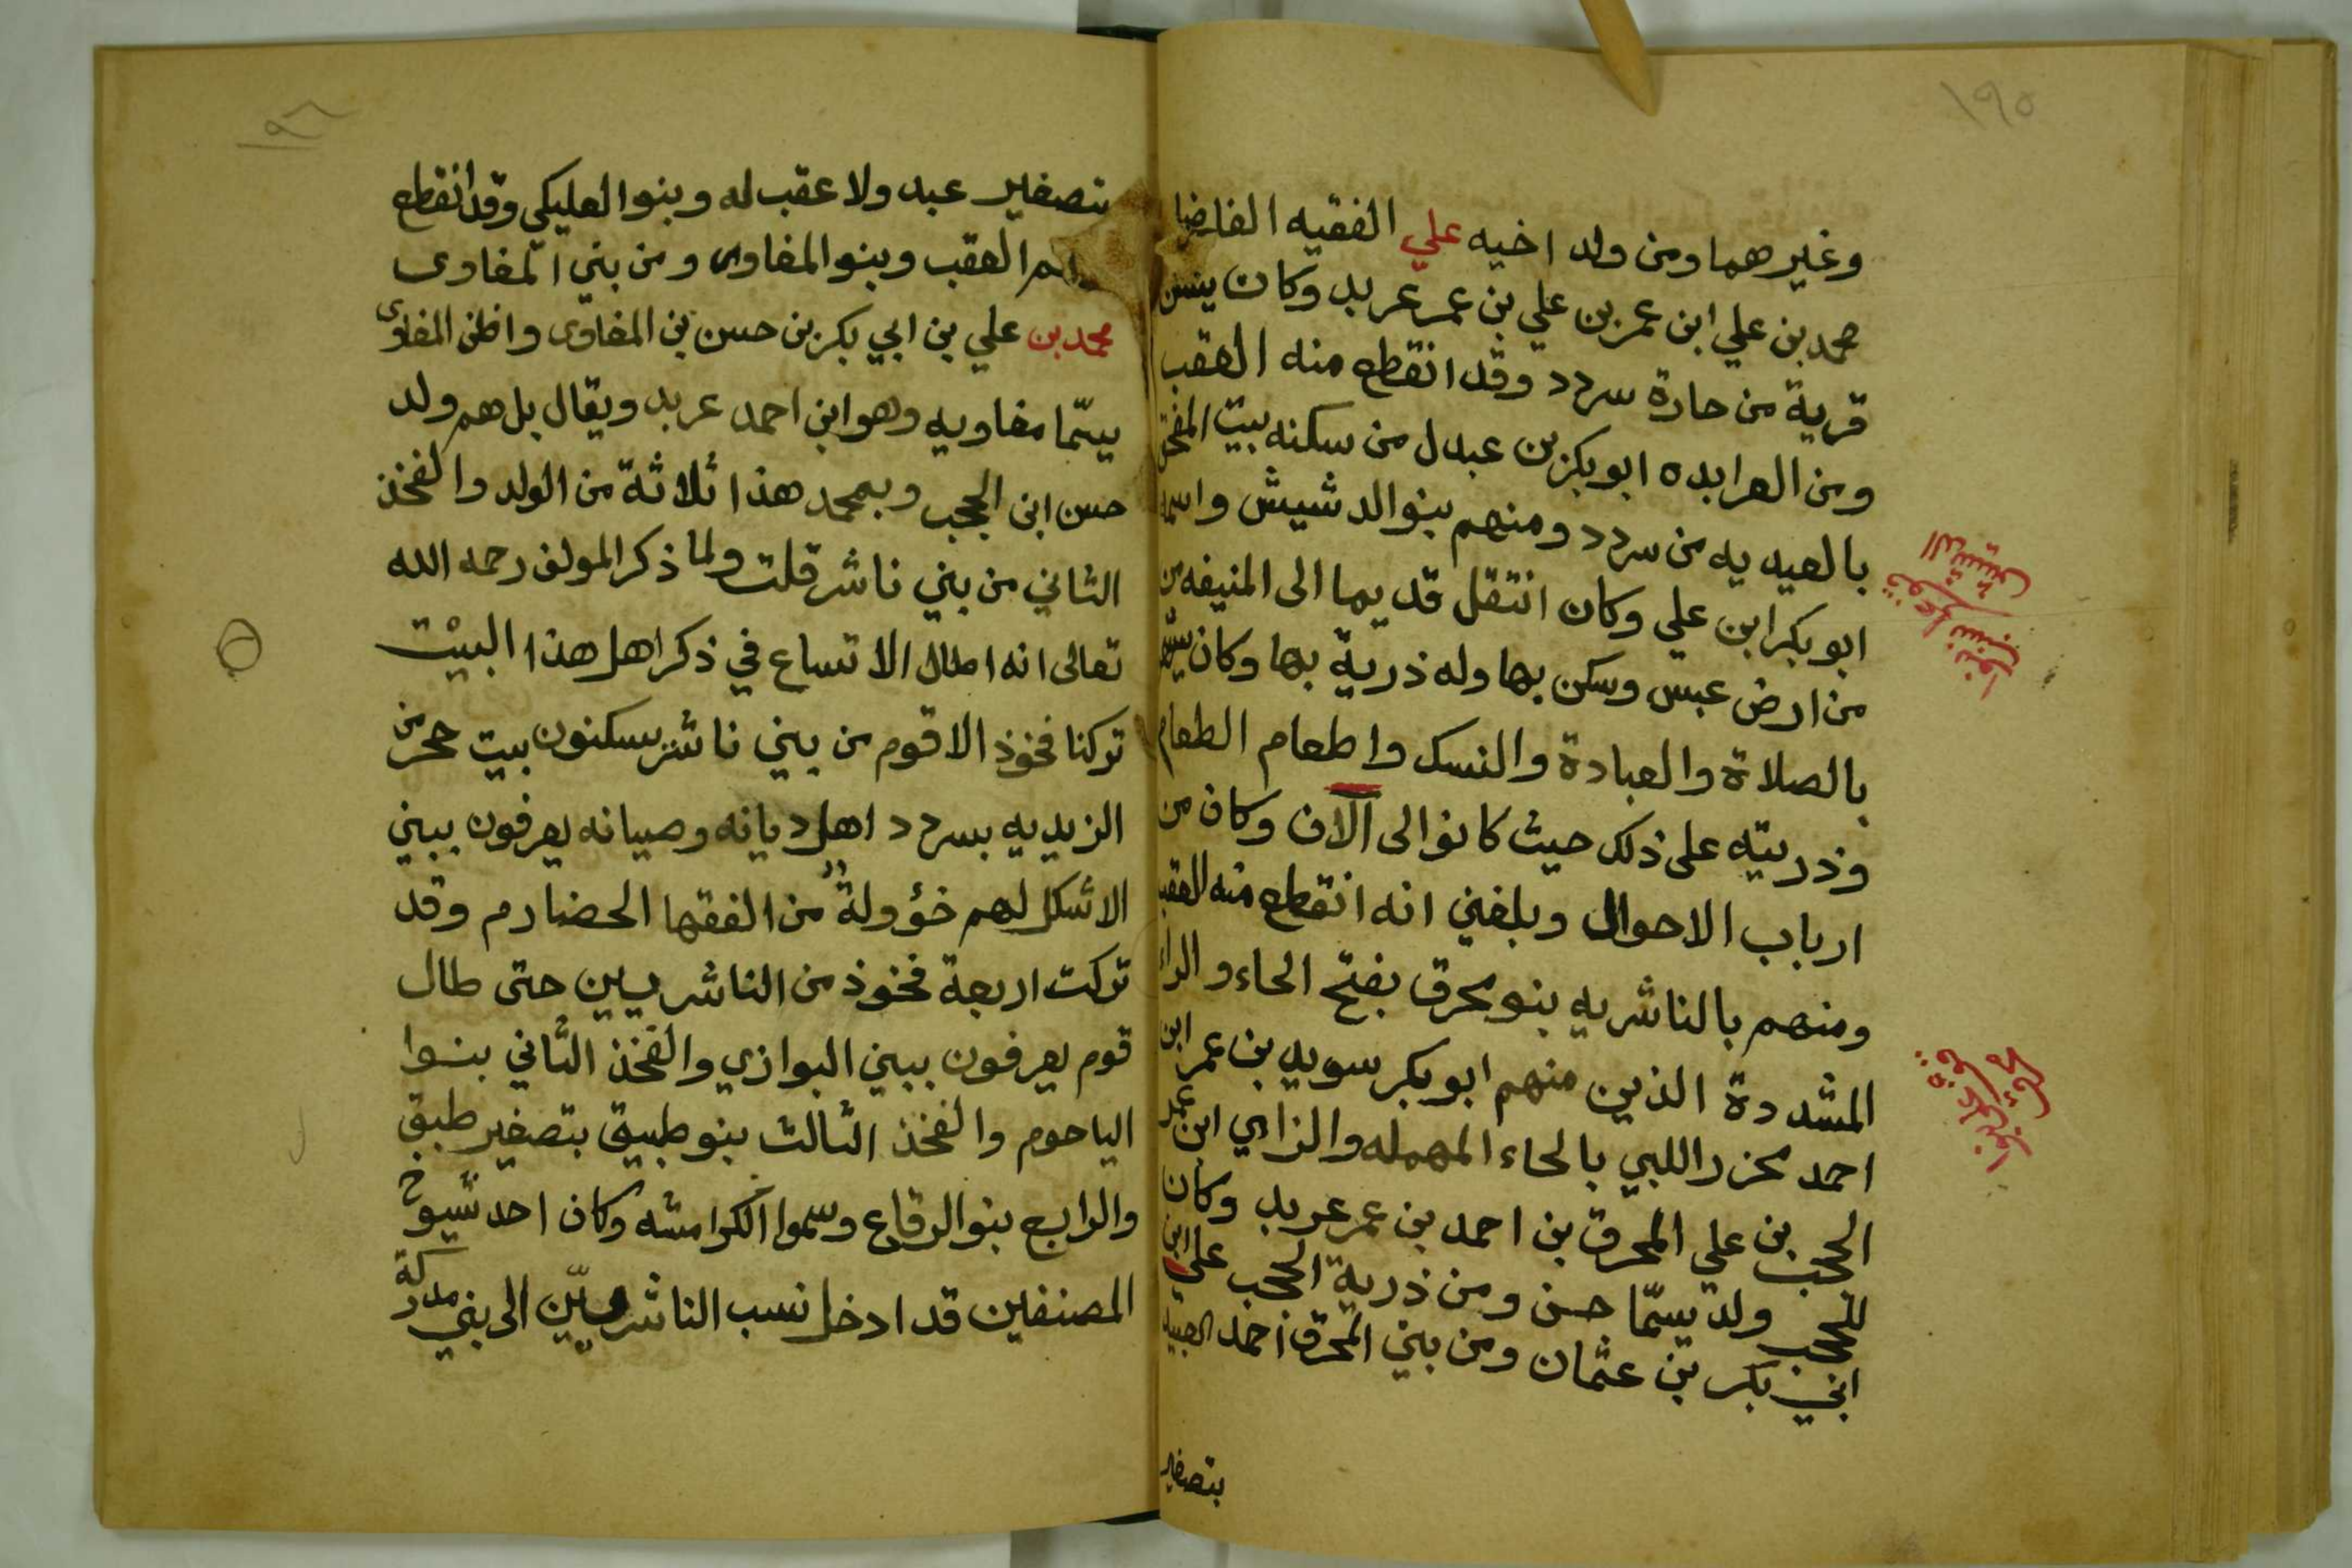 ١٩٥
وغيرهما ومن ولد اخيه علي الفقيه الفاضل
محمد بن علي ابن عمر بن علي بن عمر عربد وكان يسكن
قرية من حازة سردد وقد انقطع منه العقب
ومن العرابده ابو بكر بن عبدل من سكنه بيت
بالعيديه من سردد ومنهم بنوالدشيش واسمه
ابو بكر ابن علي وكان انتقل قديما الى المنيفه من
من ارض عبس وسكن بها وله ذرية بها وكان
بالصلاة والعبادة والنسك واطعام الطعام
وذريته على ذلك حيث كانوا الى الآن وكان من
ارباب الاحوال وبلغني انه انقطع منه العقب
ومنهم بالناشريه بنو محرق بفتح الحاء والراء
المشددة الذين منهم ابو بكر سويد بن عمر ابن
احمد محزر اللبي بالحاء المهمله والزاي ابن محمد
الججب بن علي المحرق بن احمد بن عمر عربد وكان
للججب ولد يسمّا حسن ومن ذرية الججب علي ابن
ابي بكر بن عثمان ومن بني المحرق احمد العبيد
بتصغير
الدشيش
١٩٦
بتصغير عبد ولا عقب له وبنوا العليكي وقد انقطع
العقب وبنو المغاوى ومن بني المغاوى
محمد بن علي بن ابي بكر بن حسن بن المغاوى واظن المغاوى
يسمّا مغاويه وهو ابن احمد عربد ويقال بل هم ولد
حسن ابن الججب وبمحمد هذا ثلاثة من الولد والفخذ
الثاني من بني ناشر قلت ولما ذكر المولف رحمه الله
تعالى انه اطال الاتساع في ذكر اهل هذا البيْت
تركنا فخوذ الاقوم من بني ناشر يسكنون بيت حجر من
الزيديه بسردد اهل ديانه وصيانه يعرفون ببني
الاشكل لهم خؤولةٌ من الفقها الحضارم وقد
تركت اربعة فخوذ من الناشريين حتى طال
قوم يعرفون ببني البوازي والفخذ الثاني بنوا
الياحوم والفخذ الثالث بنو طبيق بتصغير طبق
والرابع بنوالرقاع وسموا الكرامشه وكان احد شيوخ
المصنفين قد ادخل نسب الناشريّين الى بني مدركة